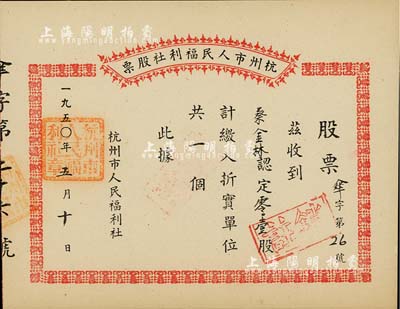 上海陽明拍賣
shyangming.com
杭州市人民福利社股票
股票
字第26號
茲收到
蔡金林認定零壹股
計繳入折實單位
共一個
此據
杭州市人民福利社
一九五〇年五月十日
字第二十六號
上海陽明拍賣